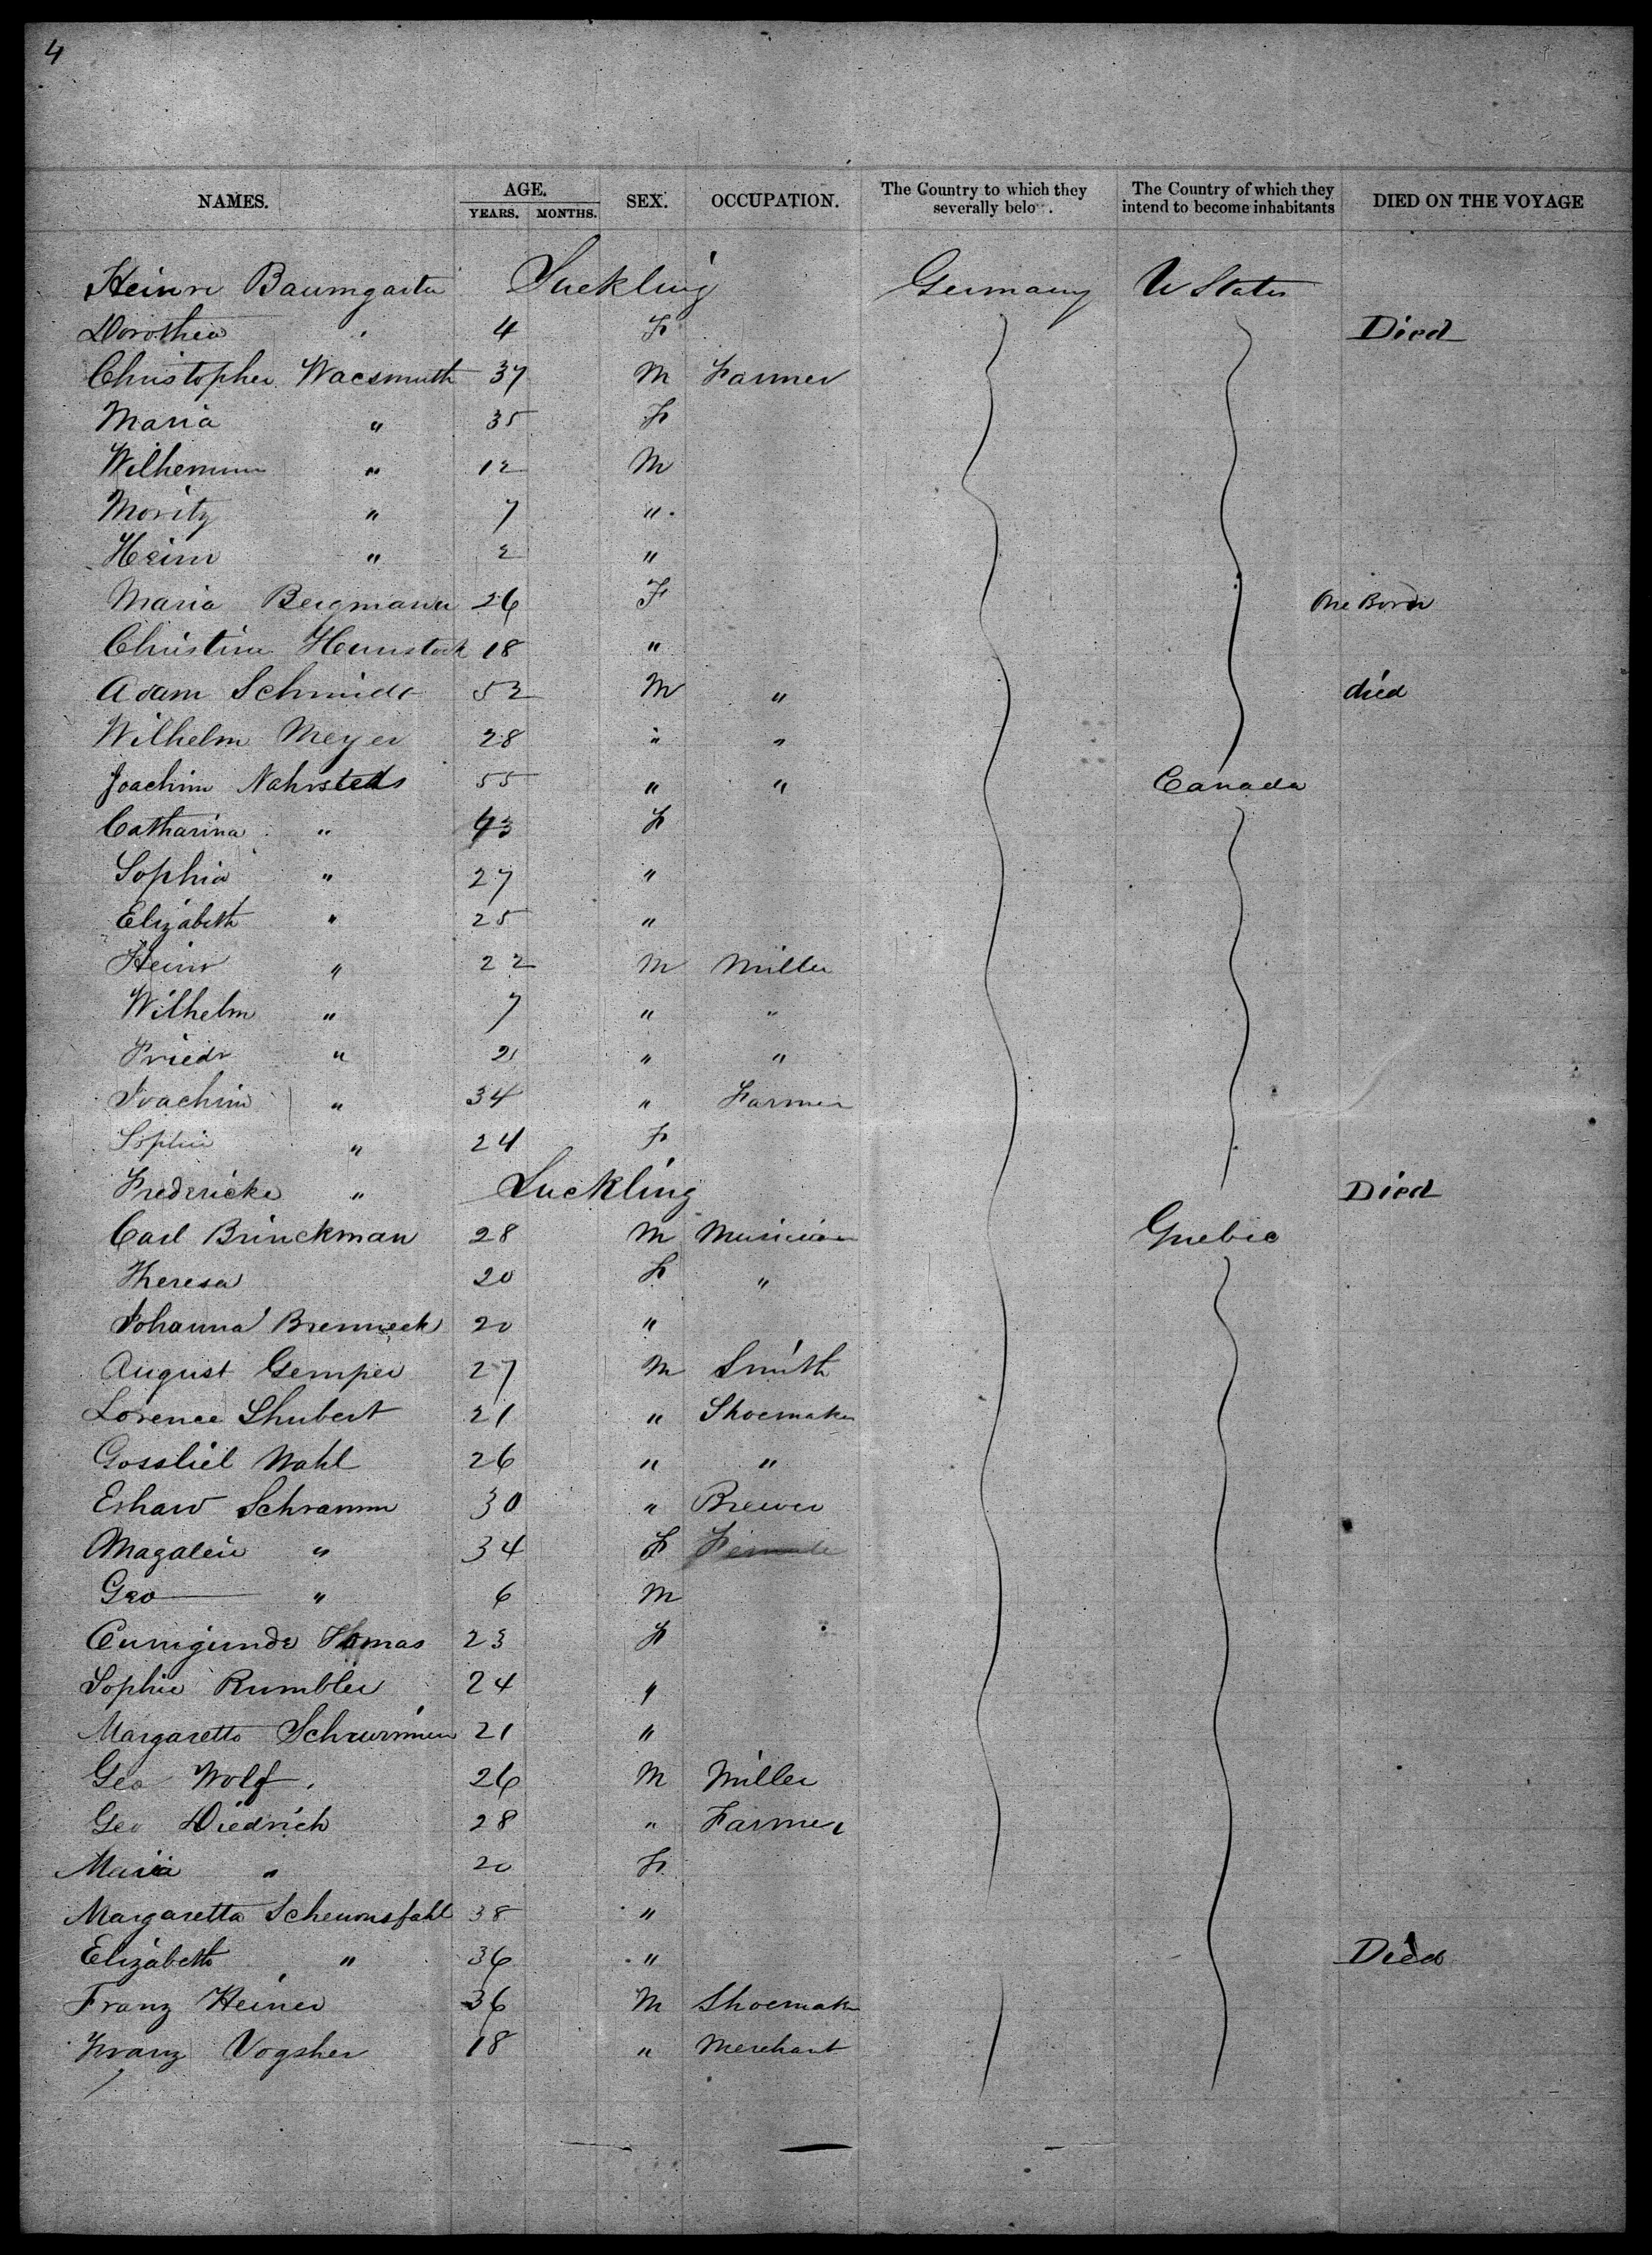 4
NAMES. AGE. YEARS. MONTHS. SEX. OCCUPATION. The Country to which they severally belo . The Country of which they intend to become inhabitants DIED ON THE VOYAGE
Heinr Baumgarten Suckling Germany U States
Dorothea " 4 F Died
Christopher Wacsmuth 37 M Farmer
Maria " 35 F
" 12 M
Moritz " 7 "
Heinr " 2 "
Maria Bergmann 26 F One Born
Christine 18 "
Adam Schmidt 52 M " died
Wilhelm Meyer 28 " "
Joachim Nahrstedt 55 " " Canada
Catharina " 43 F
Sophia " 27 "
Elizabeth " 25 "
Heinr " 22 M Miller
Wilhelm " 7 " "
Friedr " 2 " "
Joachim " 34 " Farmer
Sophie " 24 F
Fredericke " Suckling Died
Carl Brinckman 28 M Musician Quebec
Theresa 20 F "
Johanna Brenneck 20 "
August Gemper 27 M Smith
Lorence Shubert 21 " Shoemaker
Gossliel Wahl 26 " "
Erhard Schramm 30 " Brewer
Magalein " 34 F Female
Geo " 6 M
Cunigunde Homas 23 F
Sophie Rumbler 24 "
Margaretta 21 "
Geo Wolf. 26 M Miller
Geo Diedrich 28 " Farmer
Maria " 20 F
Margaretta 38 "
Elizabeth " 36 " Died
Franz Heiner 36 M Shoemaker
Franz Vogsher 18 " Merchant